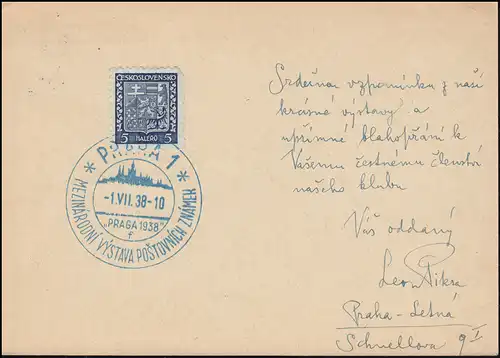 ČESKOSLOVENSKO
5 HALÉŘŮ 5
* PRAHA 1 *
-1.VII.38-10
„PRAGA 1938"
f
MEZINÁRODNÍ VÝSTAVA POŠTOVNÍCH ZNÁMEK
Srdečnou vzpomínku z naší
krásné výstavy a
upřímné blahopřání k
Vašemu čestnému členství
našeho klubu
Váš oddaný
Leon
Praha-Letná
Schnellova 9